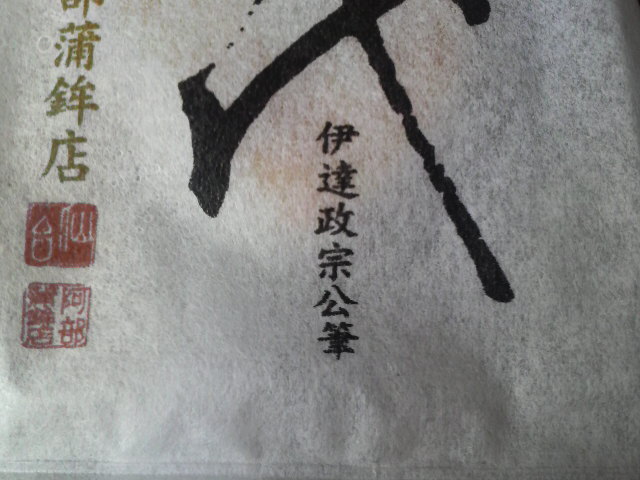 伊達政宗公筆
部蒲鉾店
仙台
阿部蒲鉾店